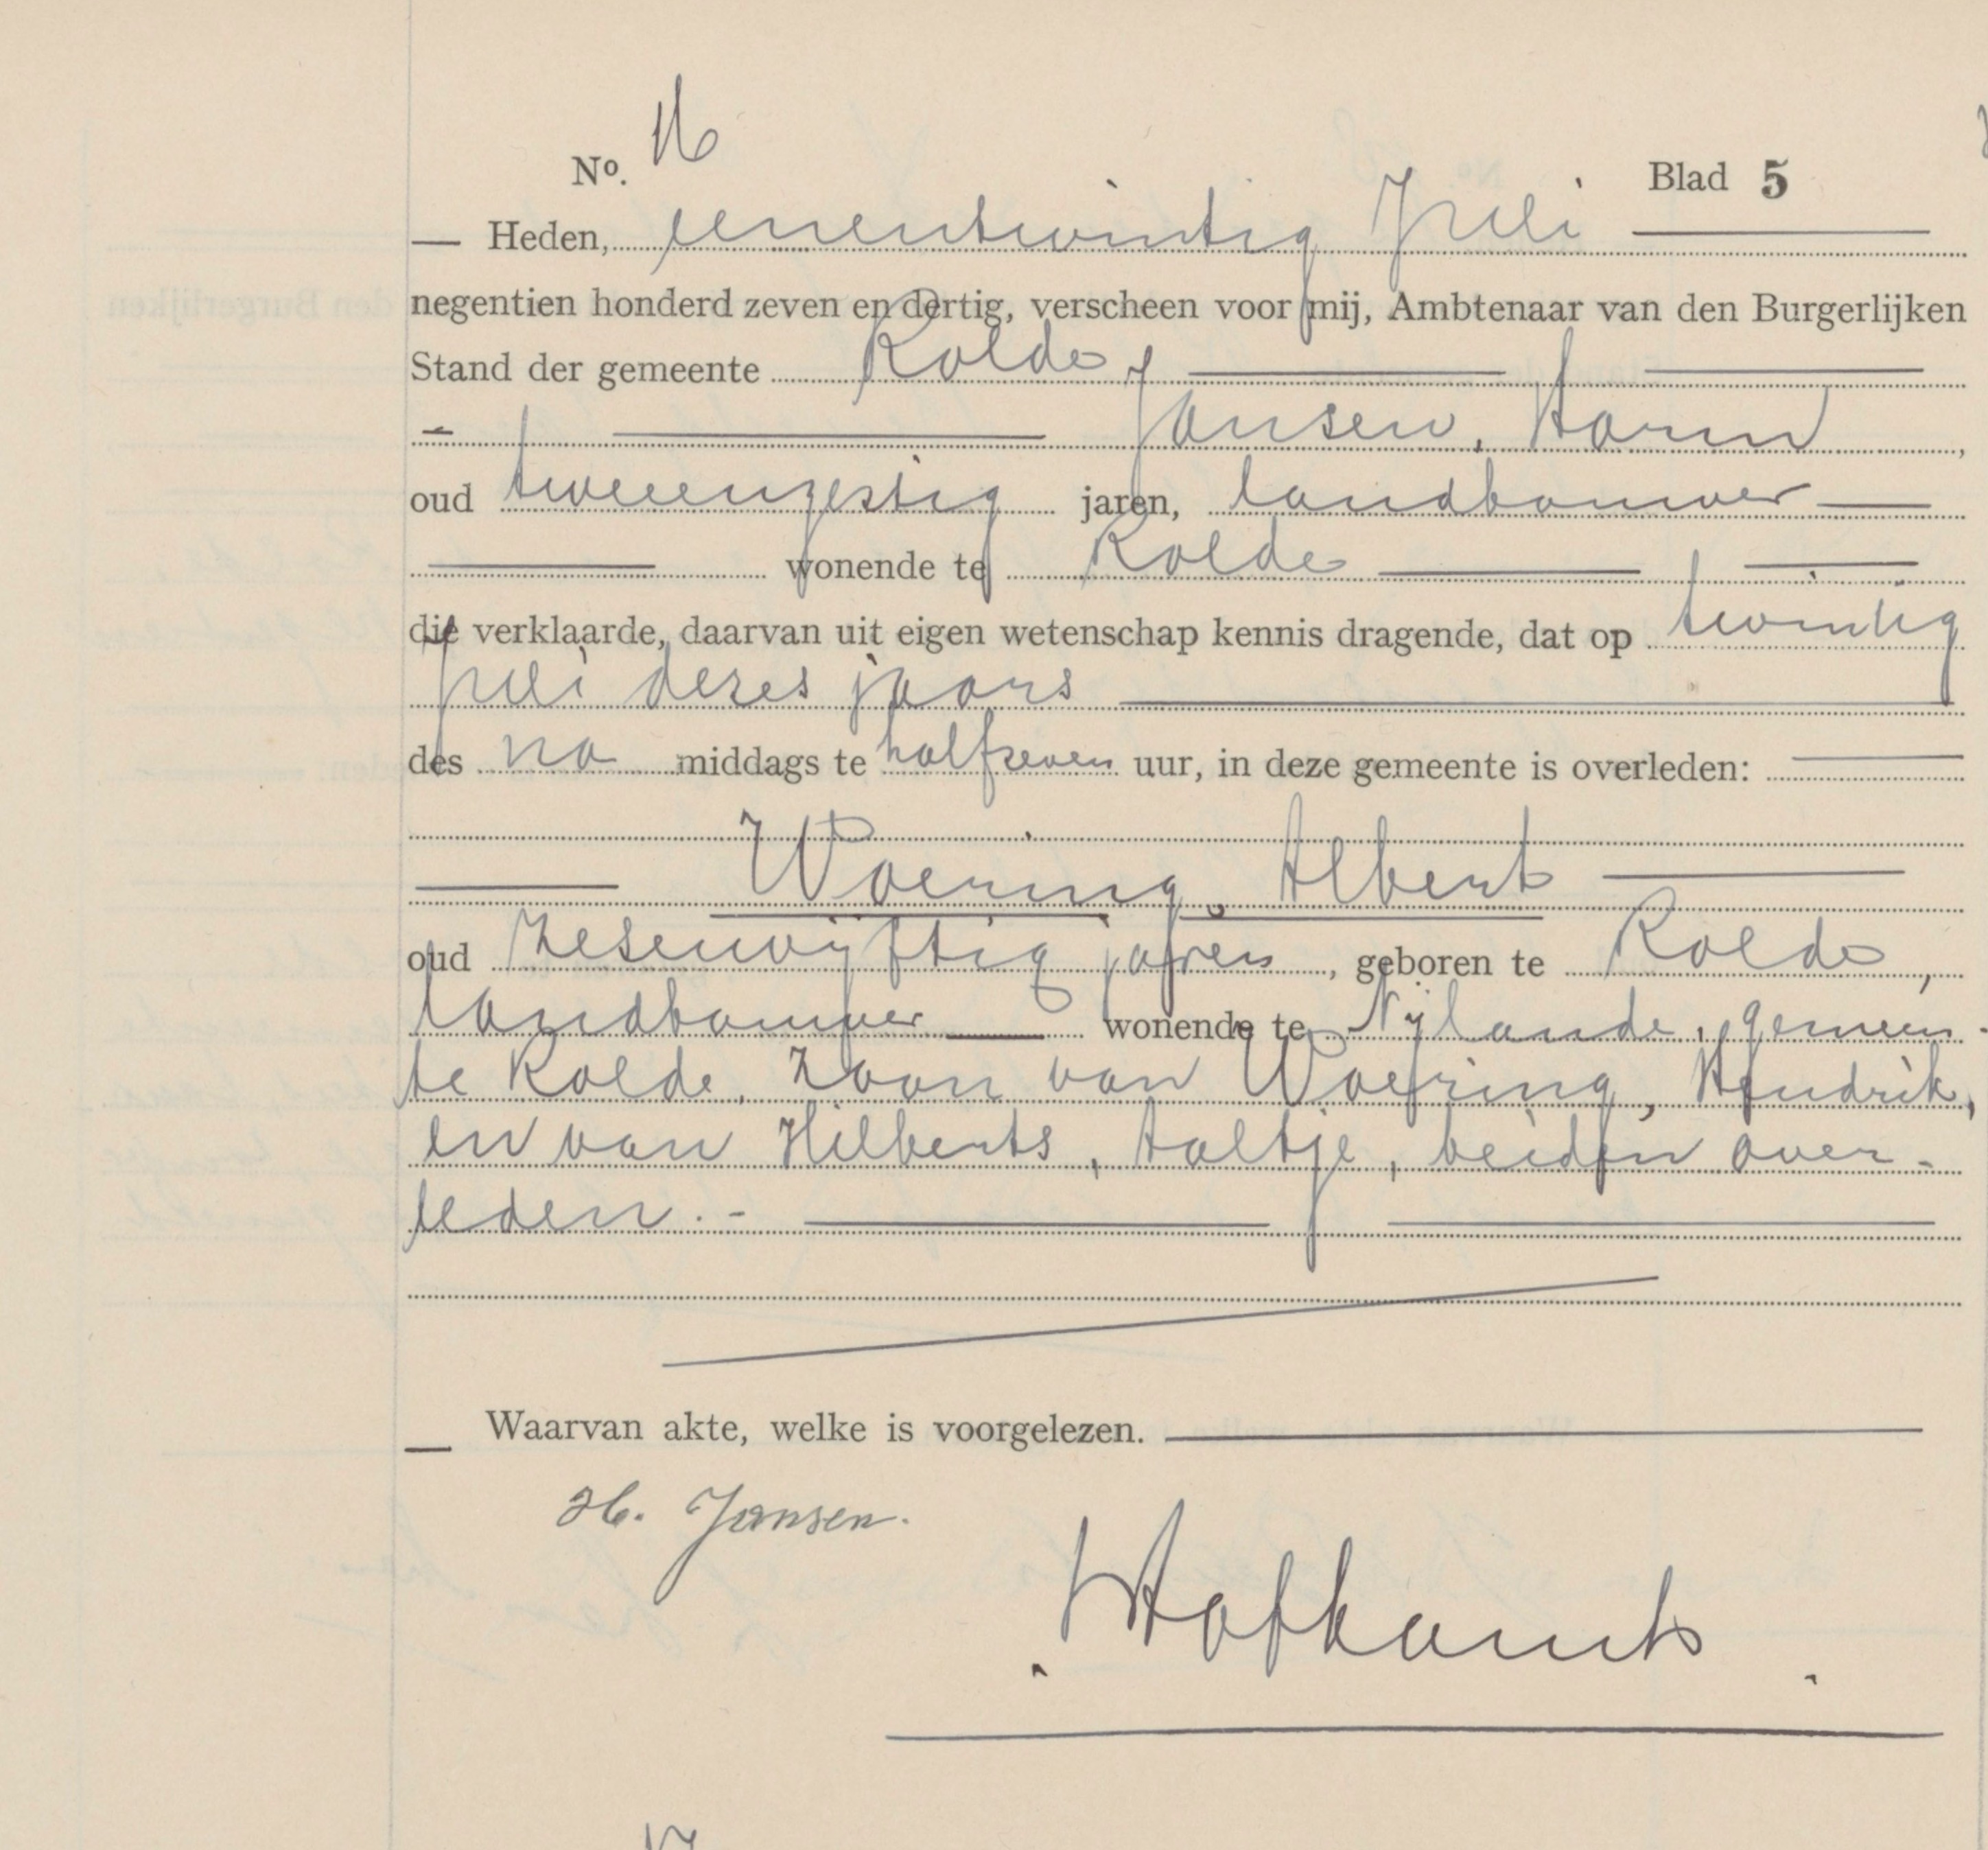 No. 16
Blad 5
Heden, eenentwintig Juli
negentien honderd zeven en dertig, verscheen voor mij, Ambtenaar van den Burgerlijken
Stand der gemeente Rolde,
Jansen, Harm,
oud tweeenzestig jaren, landbouwer
wonende te Rolde
die verklaarde, daarvan uit eigen wetenschap kennis dragende, dat op twintig
Juli dezes jaars
des na middags te halfzeven uur, in deze gemeente is overleden:
Woering, Albert
oud zesenvijftig jaren, geboren te Rolde,
landbouwer wonende te Nijlande, gemeen-
te Rolde, zoon van Woering, Hendrik,
en van Hilberts, Aaltje, beiden over-
leden.-
Waarvan akte, welke is voorgelezen.
H. Jansen.
17